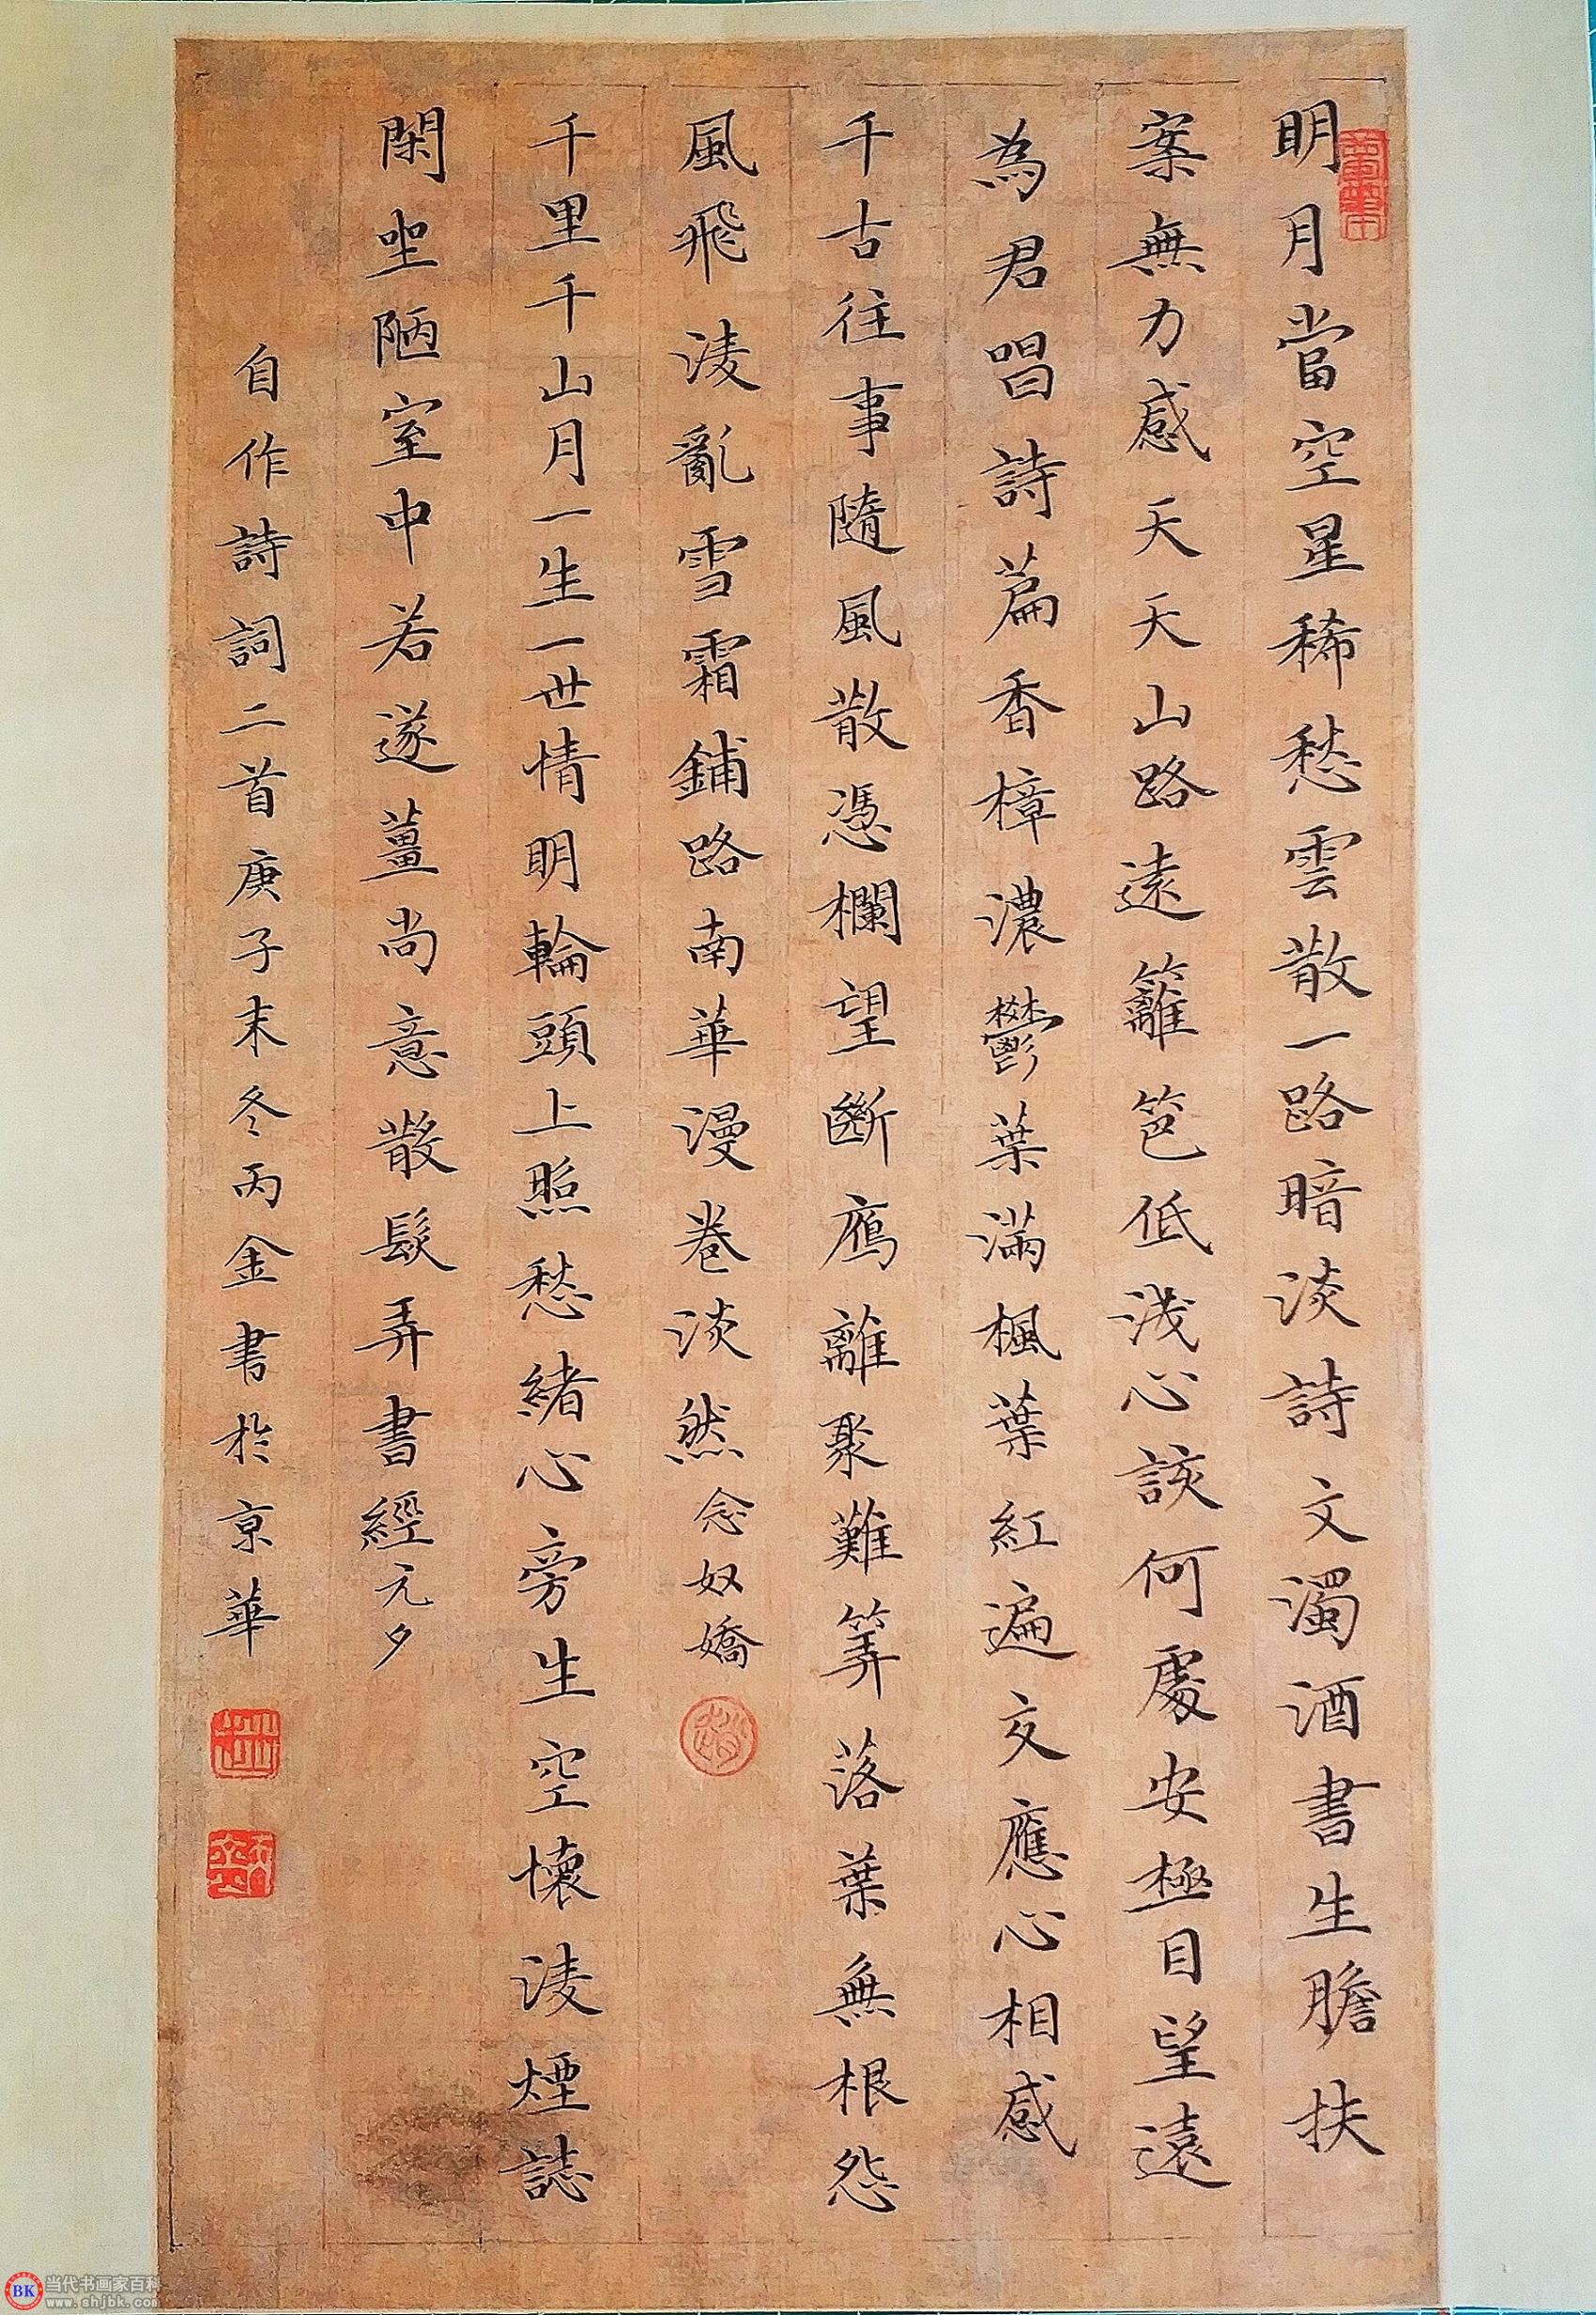 明月當空星稀愁雲散一路暗淡詩文濁酒書生膽扶
案無力感天天山路遠籬笆低淺心該何處安極目望遠
為君唱詩篇香樟濃鬱葉滿楓葉紅遍交應心相感
千古往事隨風散憑欄望斷鴈離聚難筭落葉無根怨
風飛淩亂雪霜鋪路南華漫卷淡然念奴嬌
千里千山月一生一世情明輪頭上照愁緒心旁生空懷淩煙誌
閑坐陋室中若遂薑尚意散髮弄書經元夕
自作詩詞二首庚子末冬丙金書於京華
BK 当代书画家百科
www.shjbk.com